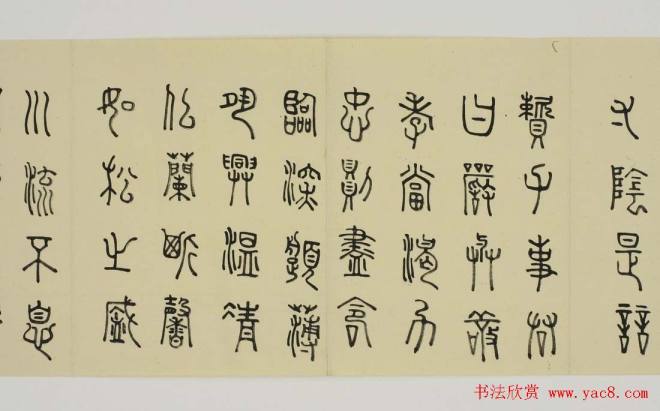 寸陰是競
資父事君
曰嚴與敬
孝當竭力
忠則盡命
臨深履薄
夙興溫凊
似蘭斯馨
如松之盛
川流不息
书法欣赏 www.yac8.com